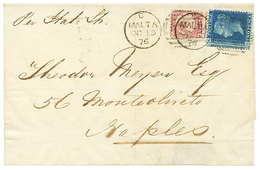 Per Ital. St.
C
MALTA
OC 13
76
MALTA
76
Theodor Meyer Esq
56 Monteoliveto
Naples.